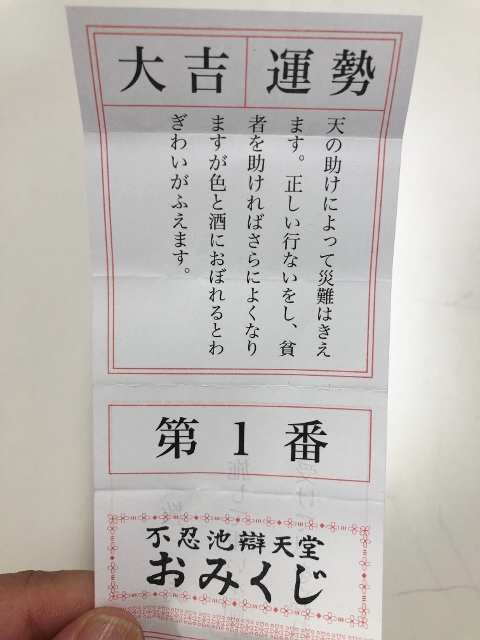 運勢
大吉
天の助けによって災難はきえ
ます。正しい行ないをし、貧
者を助ければさらによくなり
ますが色と酒におぼれるとわ
ざわいがふえます。
第1番
不忍池辯天堂
おみくじ